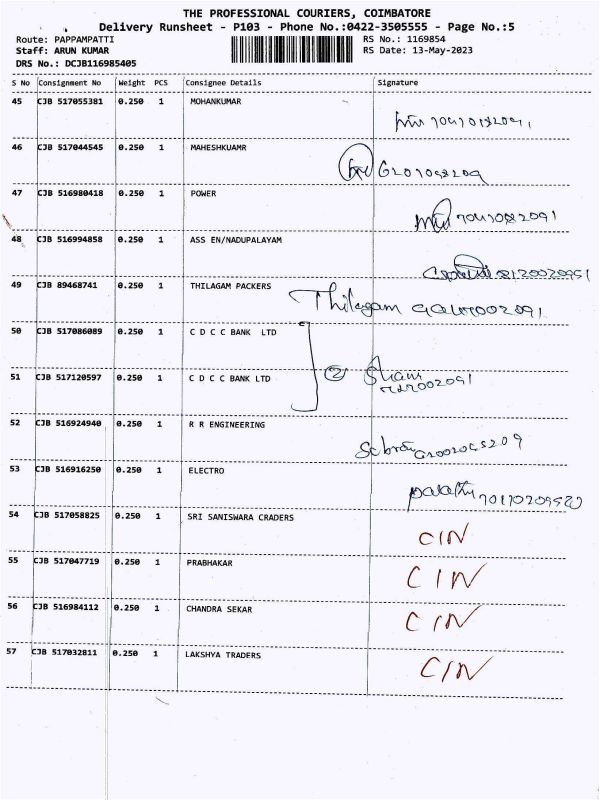 THE PROFESSIONAL COURIERS, COIMBATORE
Delivery Runsheet - P103 - Phone No.:0422-3505555 - Page No.:5
Route: PAPPAMPATTI RS No.: 1169854
Staff: ARUN KUMAR RS Date: 13-May-2023
DRS No.: DCJB116985405
S No Consignment No Weight PCS Consignee Details Signature
45 CJB 517055381 0.250 1 MOHANKUMAR
46 CJB 517044545 0.250 1 MAHESHKUAMR
47 CJB 516980418 0.250 1 POWER
48 CJB 516994858 0.250 1 ASS EN/NADUPALAYAM
49 CJB 89468741 0.250 1 THILAGAM PACKERS Thilagam
50 CJB 517086089 0.250 1 C D C C BANK LTD
51 CJB 517120597 0.250 1 C D C C BANK LTD 2
52 CJB 516924940 0.250 1 R R ENGINEERING
53 CJB 516916250 0.250 1 ELECTRO
54 CJB 517058825 0.250 1 SRI SANISWARA CRADERS CIN
55 CJB 517047719 0.250 1 PRABHAKAR CIN
56 CJB 516984112 0.250 1 CHANDRA SEKAR CIN
57 CJB 517032811 0.250 1 LAKSHYA TRADERS CIN